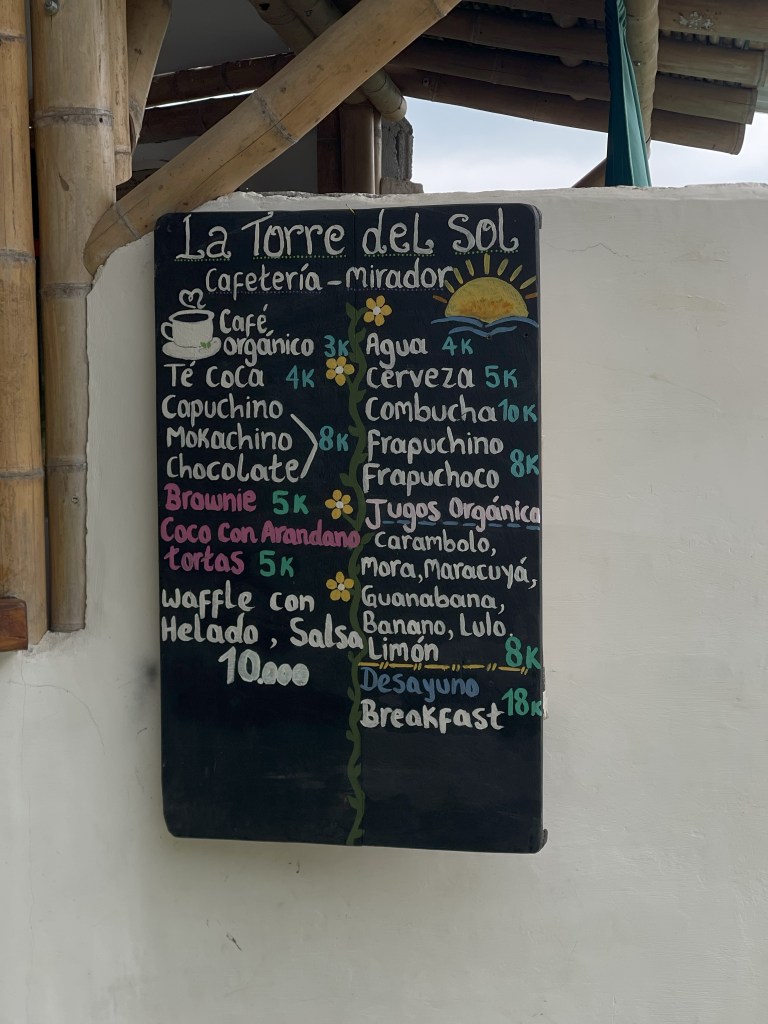 La Torre del Sol
Cafetería - Mirador
Café
orgánico 3K
Té coca 4K
Capuchino
Mokachino 8K
Chocolate
Brownie 5K
Coco con Arandano
tortas 5K
waffle con
Helado, Salsa
10.000
Agua 4K
cerveza 5K
Combucha 10K
Frapuchino
Frapuchoco 8K
Jugos Orgánica
Carambolo,
Mora, Maracuyá,
Guanabana,
Banano, Lulo.
Limón 8K
Desayuno
Breakfast 18K